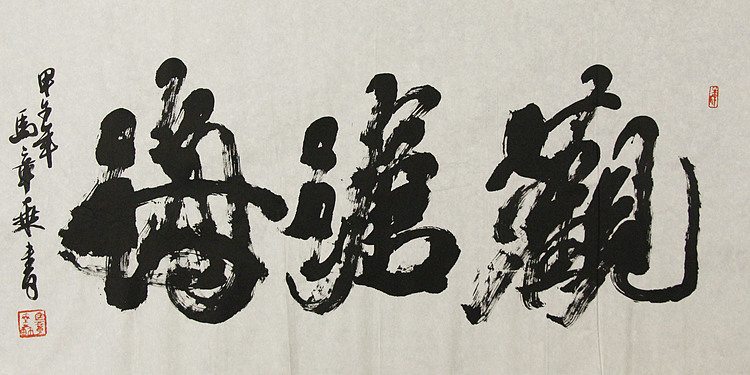 觀滄海
甲午年
馬章乘書